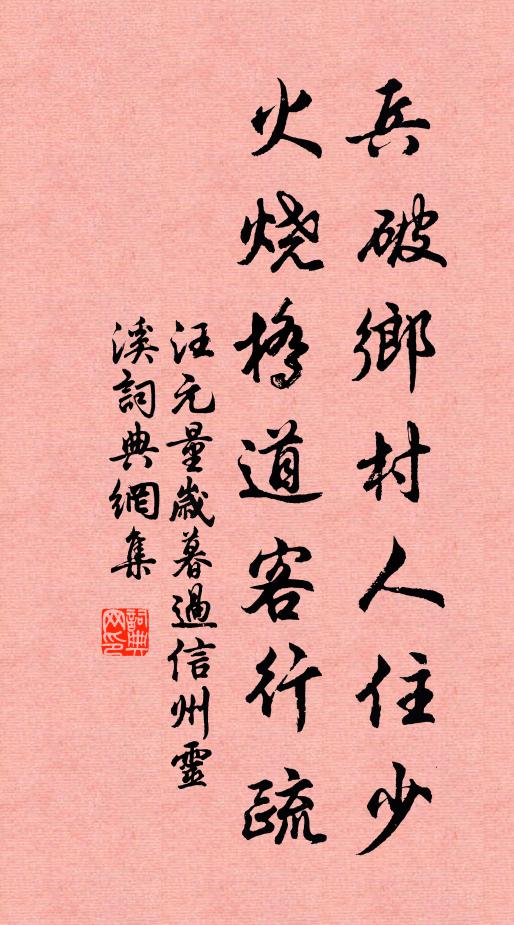 兵破鄉村人住少
火烧橋道客行疏
汪元量歲暮過信州靈
溪詞典網集
詞典
网印